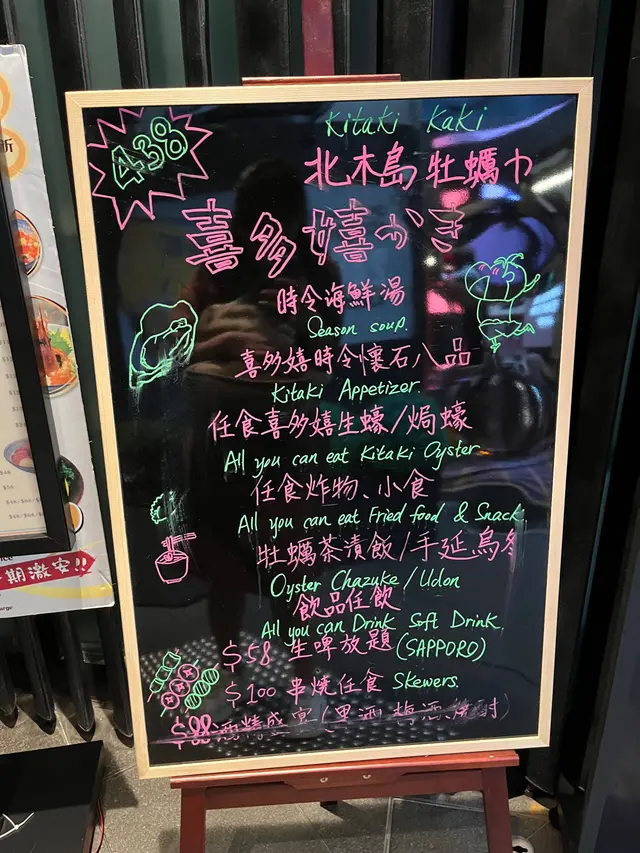 438
Kitaki Kaki
北木島牡蠣や
喜多嬉かき
時令海鮮湯
Season soup.
喜多嬉時令懷石八品
Kitaki Appetizer.
任食喜多嬉生蠔/焗蠔
All you can eat Kitaki Oyster
任食炸物、小食
All you can eat Fried food & Snack
牡蠣茶漬飯/手延烏冬
Oyster Chazuke / Udon
飲品任飲
All you can Drink Soft Drink.
$58 生啤放題(SAPPORO)
$100 串燒任食 Skewers.
$88
期激安!!